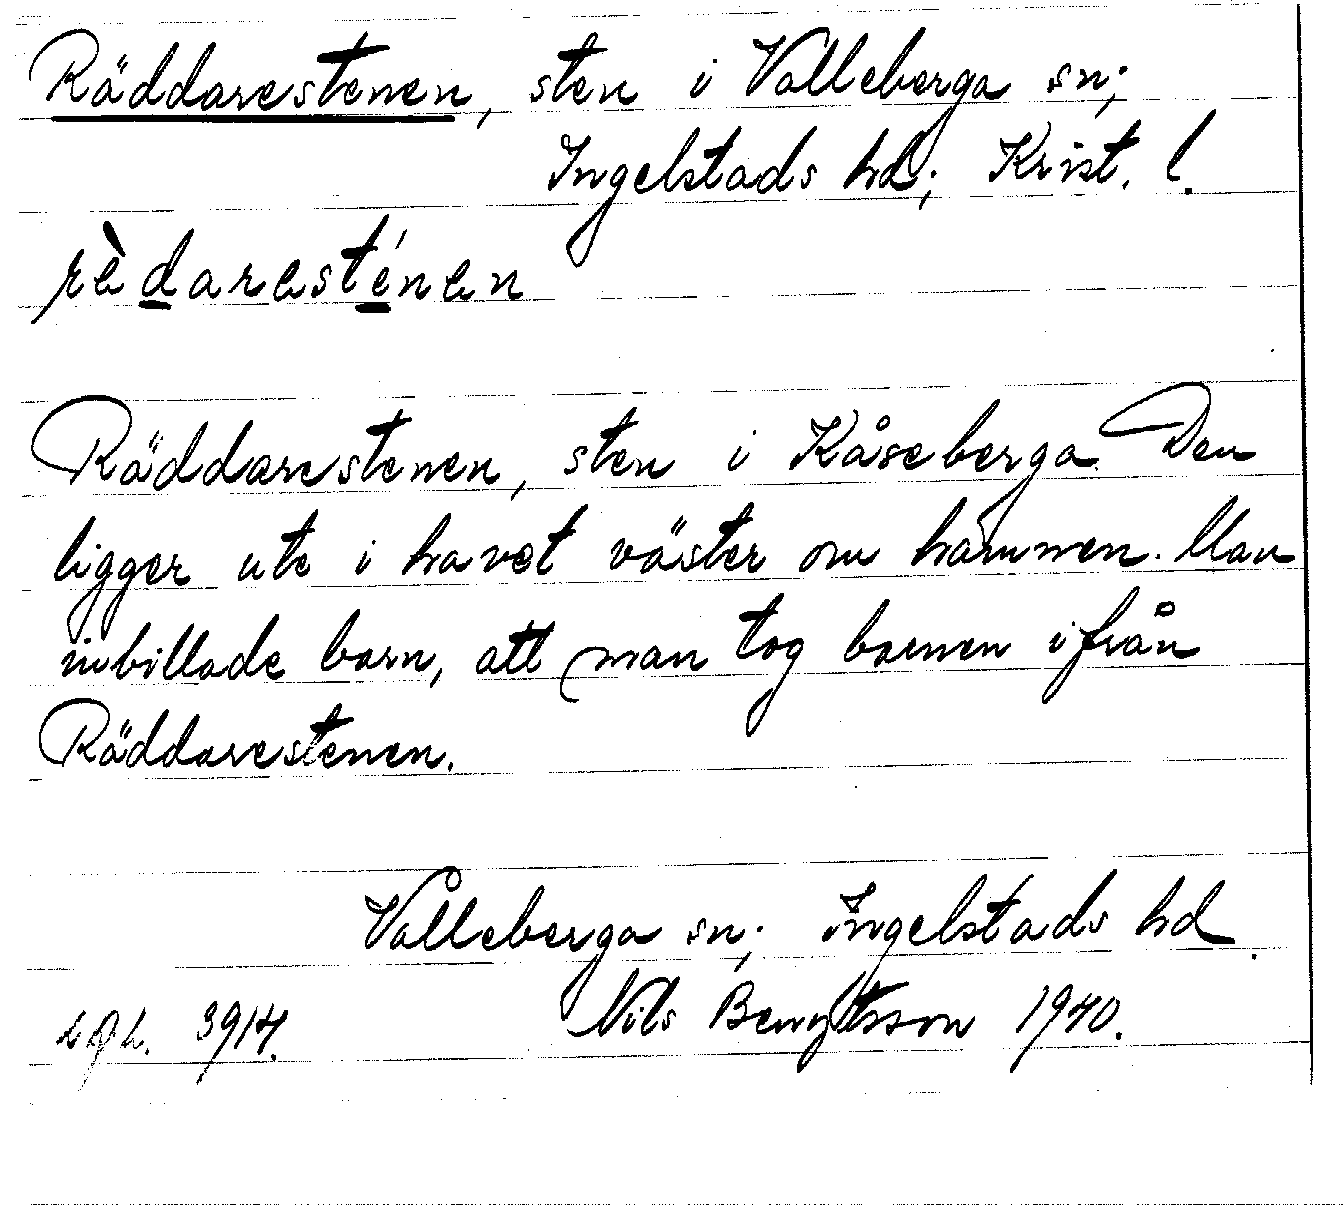 Räddarestenen, sten i Valleberga sn;
Ingelstads hd; Krist. l.
rèdaresténen
Räddarestenen, sten i Kåseberga. Den
ligger ute i havet väster om hamnen. Man
inbillade barn, att man tog barnen ifrån
Räddarestenen.
Valleberga sn; Ingelstads hd.
3914. Nils Bengtsson 1940.